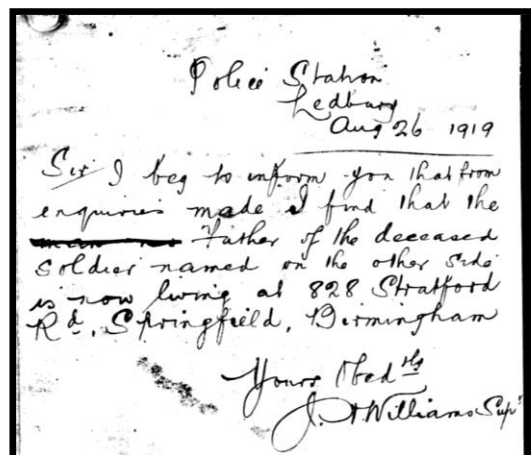 Police Station
Ledbury
Aug 26 1919
Sir I beg to inform you that from
enquiries made I find that the
Father of the deceased
soldier named on the other side
is now living at 828 Stratford
Rd, Springfield, Birmingham
Yours Obedtly
J. Williams Supt